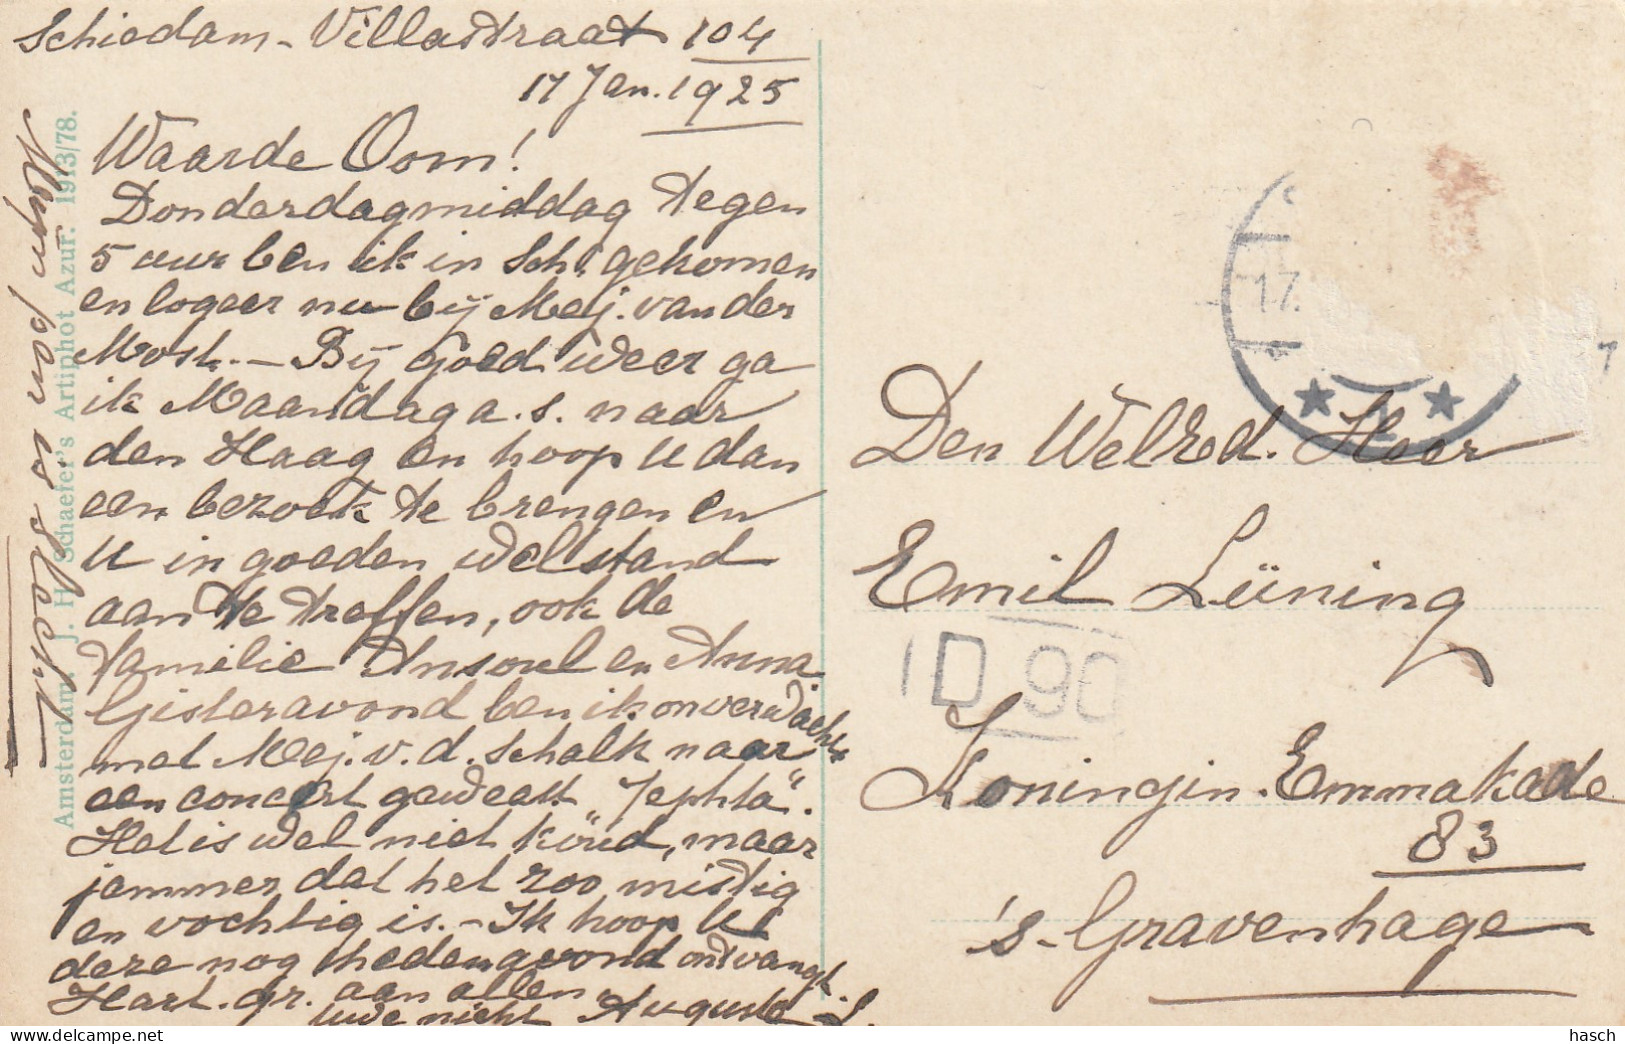 Schiedam - Villastraat 104
17 Jan. 1925
Waarde Oom!
Donderdagmiddag tegen
5 uur ben ik in Sch. gekomen
en logeer nu bij Mej. van der
Most. - Bij goed weer ga
ik Maandag a.s. naar
den Haag en hoop U dan
een bezoek te brengen en
U in goeden welstand
aan te treffen, ook de
familie Ansoul en Anna
Gisteravond ben ik onverwacht
met Mej. v. d. Schalk naar
een concert geweest „Jephta”.
Het is wel niet koud, maar
jammer, dat het zoo mistig
en vochtig is. - Ik hoop U
deze nog hedenavond ontvangt.
Hart. gr. aan allen
Uwe nicht Auguste L.
Mijn pen is slecht
Amsterdam. J. H. Schaefer's Artiphot Azur. 1913/78.
17.
1
Den WelEd. Heer
Emil Lüning
D 90
Koningin. Emmakade
83
's-Gravenhage
hasch